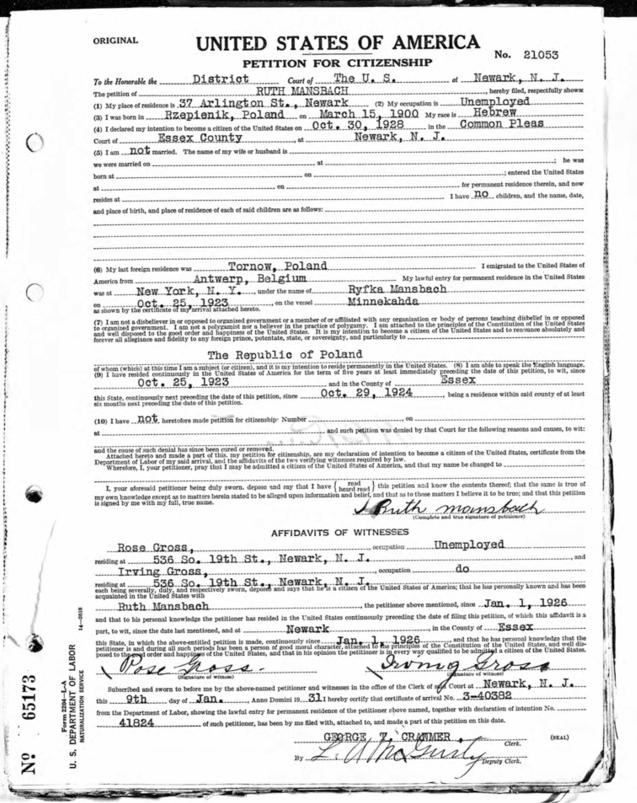 ORIGINAL
UNITED STATES OF AMERICA
PETITION FOR CITIZENSHIP
No. 21053
To the Honorable the District Court of The U. S. at Newark, N. J.
The petition of RUTH MANSBACH, hereby filed, respectfully shows:
(1) My place of residence is 37 Arlington St., Newark (2) My occupation is Unemployed
(3) I was born in Rzepienik, Poland on March 15, 1900 My race is Hebrew
(4) I declared my intention to become a citizen of the United States on Oct. 30, 1928 in the Common Pleas
Court of Essex County at Newark, N. J.
(5) I am not married. The name of my wife or husband is
we were married on at ; he was
born at on ; entered the United States
at on for permanent residence therein, and now
resides at I have no children, and the name, date,
and place of birth, and place of residence of each of said children are as follows:
(6) My last foreign residence was Tornow, Poland I emigrated to the United States of
America from Antwerp, Belgium My lawful entry for permanent residence in the United States
was at New York, N. Y. under the name of Ryfka Mansbach
on Oct. 25, 1923 on the vessel Minnekahda
as shown by the certificate of my arrival attached hereto.
(7) I am not a disbeliever in or opposed to organized government or a member of or affiliated with any organization or body of persons teaching disbelief in or opposed
to organized government. I am not a polygamist nor a believer in the practice of polygamy. I am attached to the principles of the Constitution of the United States
and well disposed to the good order and happiness of the United States. It is my intention to become a citizen of the United States and to renounce absolutely and
forever all allegiance and fidelity to any foreign prince, potentate, state, or sovereignty, and particularly to
The Republic of Poland
of whom (which) at this time I am a subject (or citizen), and it is my intention to reside permanently in the United States. (8) I am able to speak the English language.
(9) I have resided continuously in the United States of America for the term of five years at least immediately preceding the date of this petition, to wit, since
Oct. 25, 1923 and in the County of Essex
this State, continuously next preceding the date of this petition, since Oct. 29, 1924, being a residence within said county of at least
six months next preceding the date of this petition.
(10) I have not heretofore made petition for citizenship: Number on
at and such petition was denied by that Court for the following reasons, to wit:
and the cause of such denial has since been cured or removed.
Attached hereto and made a part of this, my petition for citizenship, are my declaration of intention to become a citizen of the United States, certificate from the
Department of Labor of my said arrival, and the affidavits of the two verifying witnesses required by law.
Wherefore, I, your petitioner, pray that I may be admitted a citizen of the United States of America, and that my name be changed to
I, your aforesaid petitioner being duly sworn, depose and say that I have (read / heard read) this petition and know the contents thereof; that the same is true of
my own knowledge except as to matters herein stated to be alleged upon information and belief, and that as to those matters I believe it to be true; and that this petition
is signed by me with my full, true name.
Ruth Mansbach
(Complete and true signature of petitioner)
AFFIDAVITS OF WITNESSES
Rose Gross, occupation Unemployed
residing at 536 So. 19th St., Newark, N. J., and
Irving Gross, occupation do
residing at 536 So. 19th St., Newark, N. J.
each being severally, duly, and respectively sworn, deposes and says that he is a citizen of the United States of America; that he has personally known and has been
acquainted in the United States with
Ruth Mansbach, the petitioner above mentioned, since Jan. 1, 1926
and that to his personal knowledge the petitioner has resided in the United States continuously preceding the date of filing this petition, of which this affidavit is a
part, to wit, since the date last mentioned, and at Newark, in the County of Essex
this State, in which the above-entitled petition is made, continuously since Jan. 1, 1926, and that he has personal knowledge that the
petitioner is and during all such periods has been a person of good moral character, attached to the principles of the Constitution of the United States, and well dis-
posed to the good order and happiness of the United States, and that in his opinion the petitioner is in every way qualified to be admitted a citizen of the United States.
Rose Gross Irving Gross
(Signature of witness) (Signature of witness)
Subscribed and sworn to before me by the above-named petitioner and witnesses in the office of the Clerk of said Court at Newark, N. J.
this 9th day of Jan. Anno Domini 1931 I hereby certify that certificate of arrival No. 3-40382
from the Department of Labor, showing the lawful entry for permanent residence of the petitioner above named, together with declaration of intention No.
41824 of such petitioner, has been by me filed with, attached to, and made a part of this petition on this date.
GEORGE T. CRANMER
Clerk.
(SEAL)
By
Deputy Clerk.
No 65173
Form 2204-L-A
U. S. DEPARTMENT OF LABOR
NATURALIZATION SERVICE
14-2618